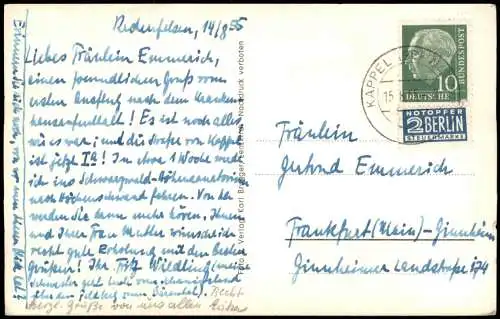 14/8 55
Liebes Fräulein Emmerich,
einen freundlichen Gruß vom
ersten Ausflug nach dem Kranken-
hausaufenthalt! Es ist noch alles
wie es war; und die Straße von Kappel
ist jetzt Ia! In etwa 1 Woche werde
ich ins Schwarzwald-Höhensanatorium
nach fahren. Von dort
werden Sie dann mehr hören. Ihnen
und Ihrer Frau Mutter wünsche ich
recht gute Erholung mit den besten
Grüßen! Ihr Fritz Wiedling (meine
Schwester
den Feldberg vom Bärental). Recht
herzl. Grüße von uns allen
Foto u. Verlag Karl
Nachdruck verboten
KAPPEL
15.
10
DEUTSCHE BUNDESPOST
NOTOPFER
2 BERLIN
STEUERMARKE
Fräulein
Emmerich
Frankfurt (Main)-Ginnheim
Ginnheimer Landstraße 174